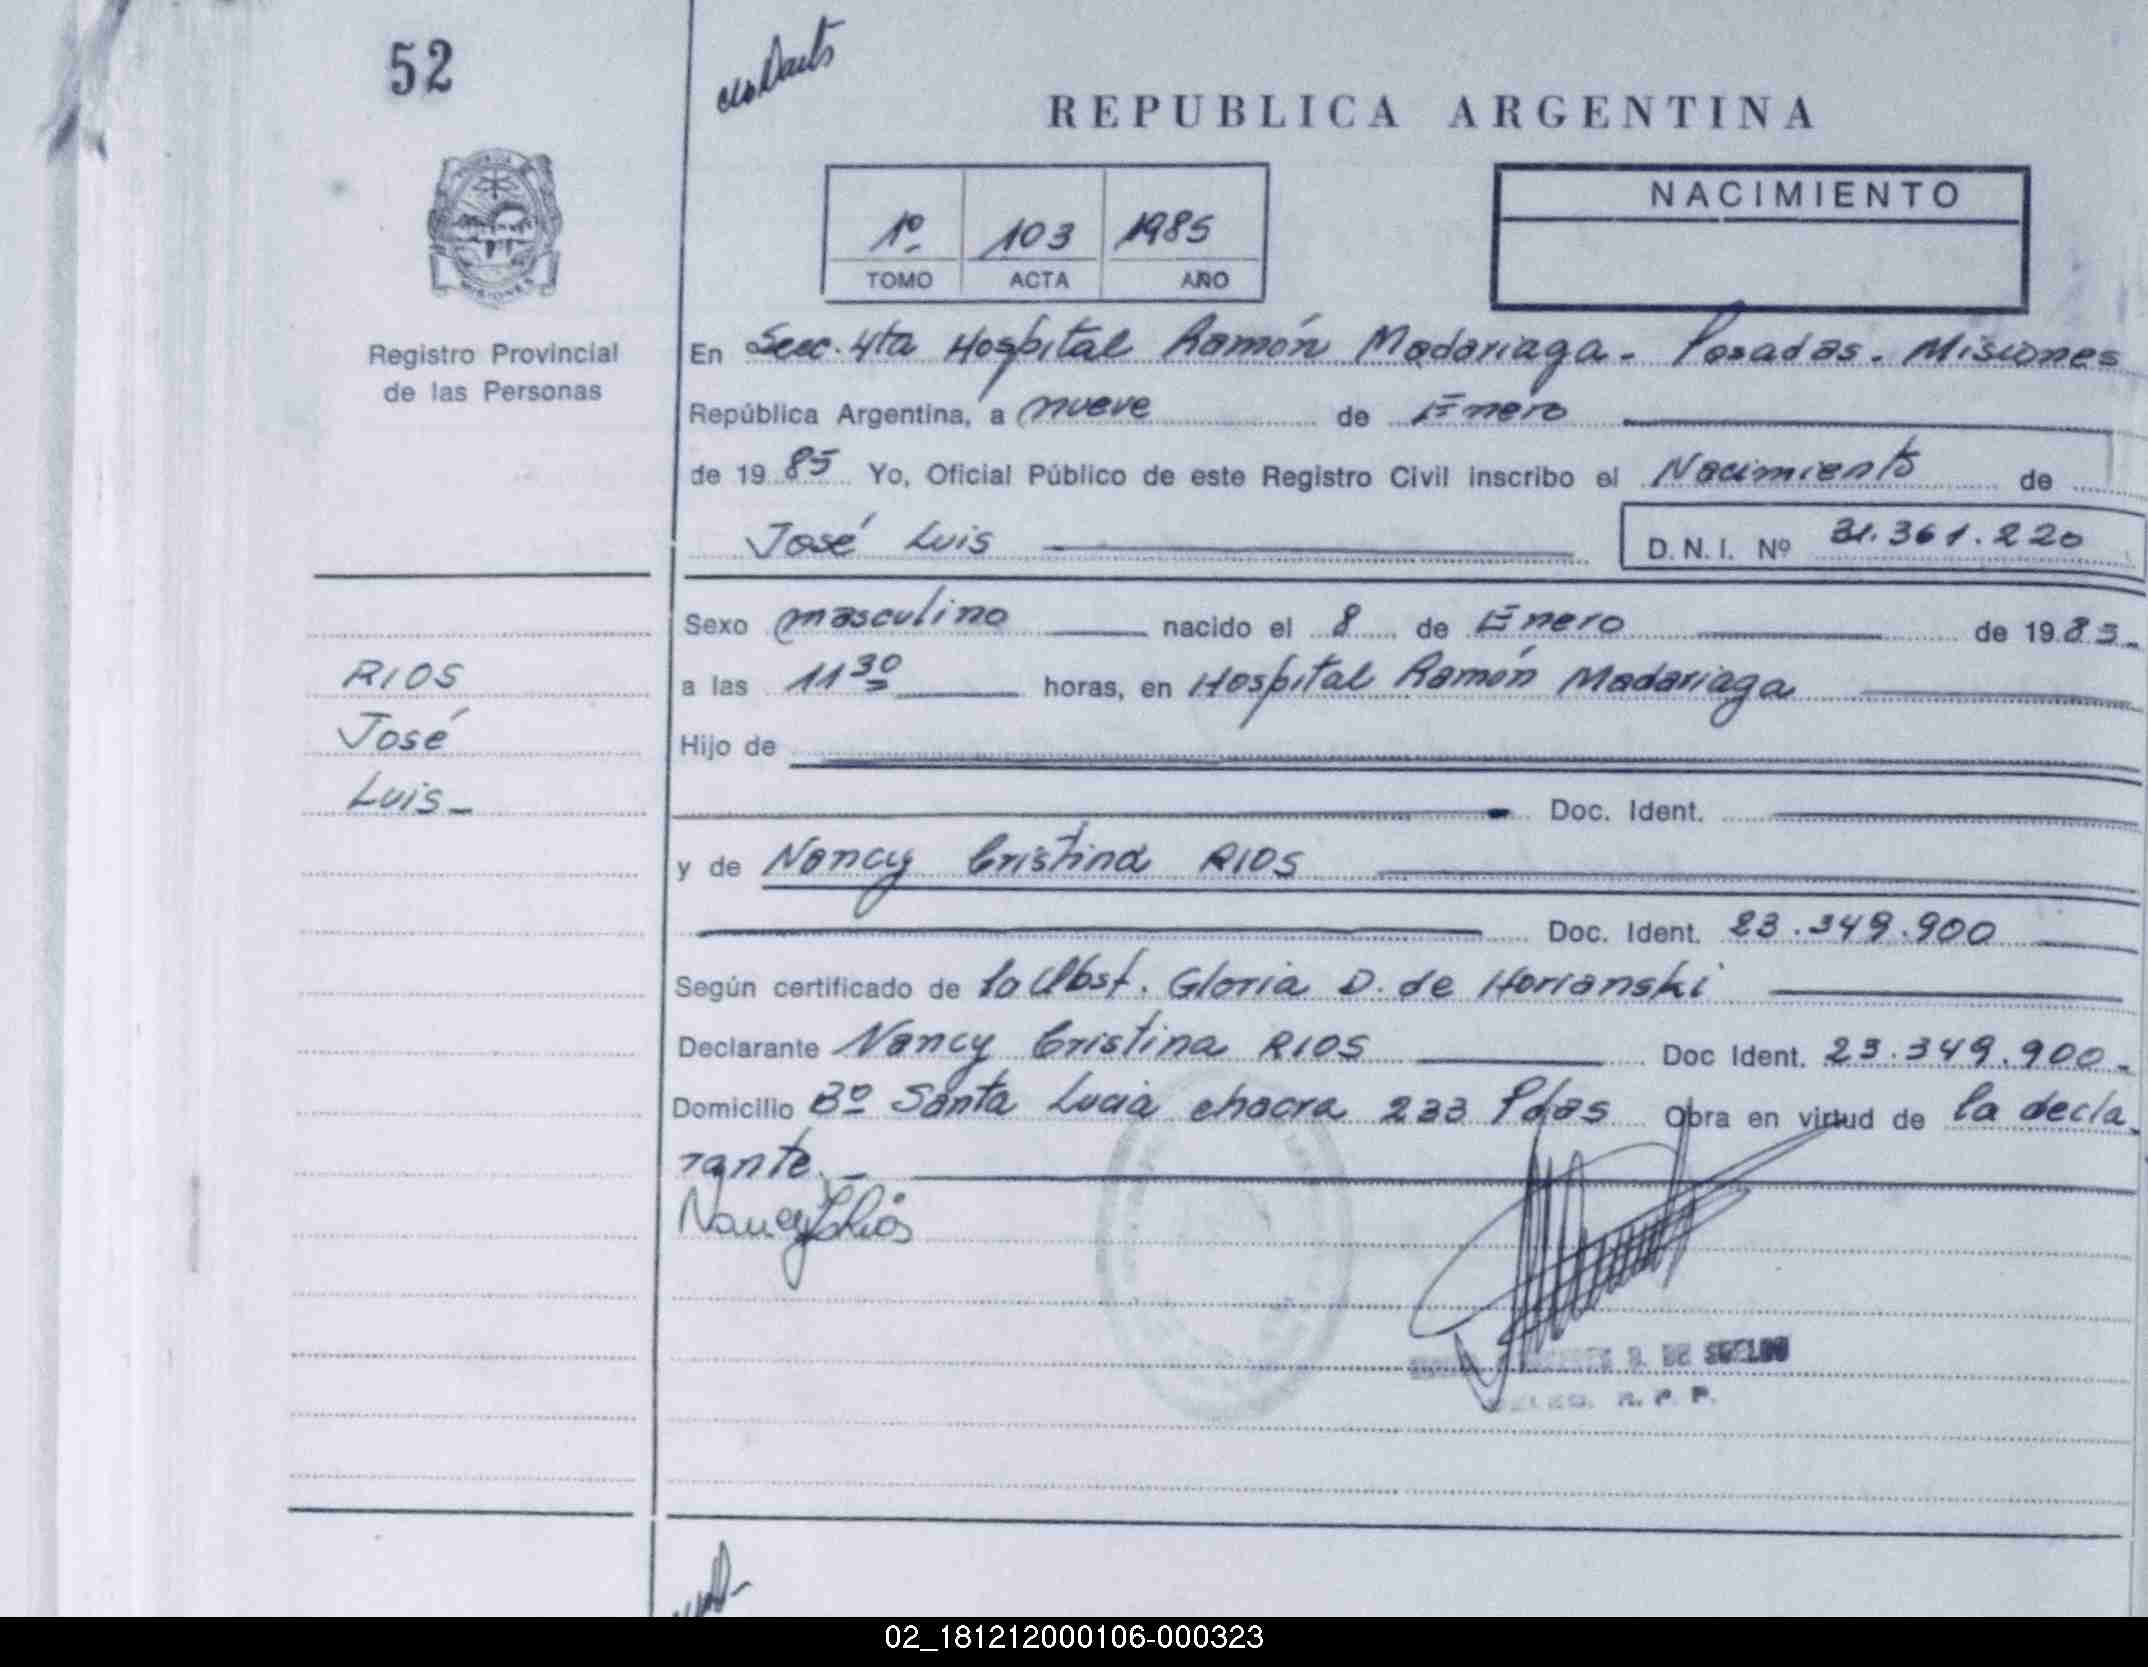 52
REPUBLICA ARGENTINA
1º 103 1985
TOMO ACTA AÑO
NACIMIENTO
MISIONES
Registro Provincial
de las Personas
En Secc. 4ta Hospital Ramón Madariaga - Posadas - Misiones
República Argentina, a nueve de Enero
de 19 85 Yo, Oficial Público de este Registro Civil inscribo el Nacimiento de
José Luis D.N.I. Nº 31.361.220
Sexo masculino nacido el 8 de Enero de 19 85-
a las 11 30 horas, en Hospital Ramón Madariaga
Hijo de
Doc. Ident.
y de Nancy Cristina RIOS
Doc. Ident. 23.349.900
Según certificado de la Obst. Gloria D. de Horianski
Declarante Nancy Cristina RIOS Doc Ident. 23.349.900-
Domicilio Bº Santa Lucia chacra 233 Pdas Obra en virtud de la decla-
rante.-
RIOS
José
Luis-
Nancy Rios
B. DE SUELDO
R. P. P.
02_181212000106-000323